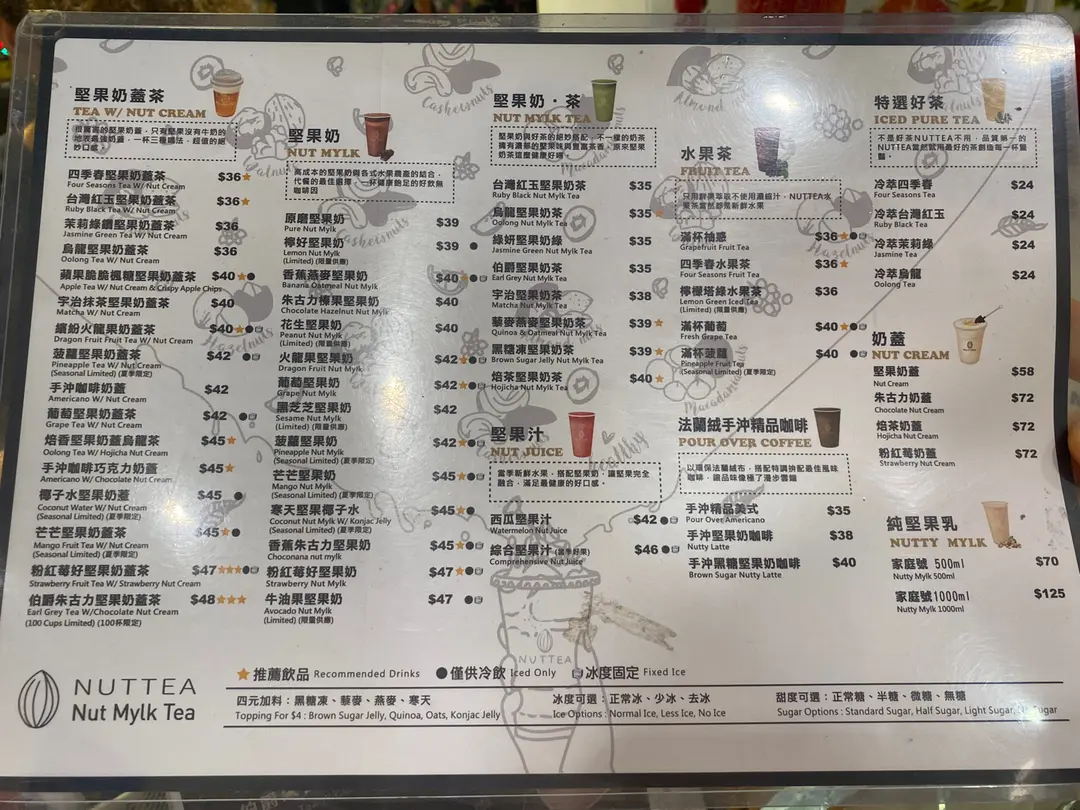 堅果奶蓋茶
TEA W/ NUT CREAM
很厲害的堅果奶蓋，只有堅果沒有牛奶的
地表最強奶蓋，一杯三種喝法，超值的絕
妙口感。
四季春堅果奶蓋茶 $36
Four Seasons Tea W/ Nut Cream
台灣紅玉堅果奶蓋茶 $36
Ruby Black Tea W/ Nut Cream
茉莉綠鑽堅果奶蓋茶 $36
Jasmine Green Tea W/ Nut Cream
烏龍堅果奶蓋茶 $36
Oolong Tea W/ Nut Cream
蘋果脆脆楓糖堅果奶蓋茶 $40
Apple Tea W/ Nut Cream & Crispy Apple Chips
宇治抹茶堅果奶蓋茶 $40
Matcha W/ Nut Cream
繽紛火龍果堅果奶蓋茶 $40
Dragon Fruit Fruit Tea W/ Nut Cream
菠蘿堅果奶蓋茶 $42
Pineapple Tea W/ Nut Cream
(Seasonal Limited) (夏季限定)
手沖咖啡奶蓋 $42
Americano W/ Nut Cream
葡萄堅果奶蓋茶 $42
Grape Tea W/ Nut Cream
焙香堅果奶蓋烏龍茶 $45
Oolong Tea W/ Hojicha Nut Cream
手沖咖啡巧克力奶蓋 $45
Americano W/ Chocolate Nut Cream
椰子水堅果奶蓋 $45
Coconut Water W/ Nut Cream
(Seasonal Limited) (夏季限定)
芒芒堅果奶蓋茶 $45
Mango Fruit Tea W/ Nut Cream
(Seasonal Limited) (夏季限定)
粉紅莓好堅果奶蓋茶 $47
Strawberry Fruit Tea W/ Strawberry Nut Cream
伯爵朱古力堅果奶蓋茶 $48
Earl Grey Tea W/Chocolate Nut Cream
(100 Cups Limited) (100杯限定)
堅果奶
NUT MYLK
高成本的堅果奶與各式水果農產的結合，
代餐的最佳選擇，一杯健康飽足的好飲無
咖啡因
原磨堅果奶 $39
Pure Nut Mylk
檸好堅果奶 $39
Lemon Nut Mylk
(Limited) (限量供應)
香蕉燕麥堅果奶 $40
Banana Oatmeal Nut Mylk
朱古力榛果堅果奶 $40
Chocolate Hazelnut Nut Mylk
花生堅果奶 $40
Peanut Nut Mylk
(Limited) (限量供應)
火龍果堅果奶 $42
Dragon Fruit Nut Mylk
葡萄堅果奶 $42
Grape Nut Mylk
黑芝芝堅果奶 $42
Sesame Nut Mylk
(Limited) (限量供應)
菠蘿堅果奶 $42
Pineapple Nut Mylk
(Seasonal Limited) (夏季限定)
芒芒堅果奶 $45
Mango Nut Mylk
(Seasonal Limited) (夏季限定)
寒天堅果椰子水 $45
Coconut Nut Mylk W/ Konjac Jelly
(Seasonal Limited) (夏季限定)
香蕉朱古力堅果奶 $45
Choconana nut mylk
粉紅莓好堅果奶 $47
Strawberry Nut Mylk
牛油果堅果奶 $47
Avocado Nut Mylk
(Limited) (限量供應)
堅果奶・茶
NUT MYLK TEA
堅果奶與好茶的絕妙搭配，不一樣的奶茶
擁有濃郁的堅果味與豐富茶香，原來堅果
奶茶這麼健康好喝。
台灣紅玉堅果奶茶 $35
Ruby Black Nut Mylk Tea
烏龍堅果奶茶 $35
Oolong Nut Mylk Tea
綠妍堅果奶綠 $35
Jasmine Green Nut Mylk Tea
伯爵堅果奶茶 $35
Earl Grey Nut Mylk Tea
宇治堅果奶茶 $38
Matcha Nut Mylk Tea
藜麥燕麥堅果奶茶 $39
Quinoa & Oatmeal Nut Mylk Tea
黑糖凍堅果奶茶 $39
Brown Sugar Jelly Nut Mylk Tea
焙茶堅果奶茶 $40
Hojicha Nut Mylk Tea
堅果汁
NUT JUICE
當季新鮮水果，搭配堅果奶，讓堅果完全
融合，滿足最健康的好口感。
西瓜堅果汁 $42
Watermelon Nut Juice
綜合堅果汁 (當季好果) $46
Comprehensive Nut Juice
水果茶
FRUIT TEA
只用鮮果萃取不使用濃縮汁，NUTTEA水
果茶當然都是新鮮水果
滿杯柚惑 $36
Grapefruit Fruit Tea
四季春水果茶 $36
Four Seasons Fruit Tea
檸檬塔綠水果茶 $36
Lemon Green Iced Tea
(Limited) (限量供應)
滿杯葡萄 $40
Fresh Grape Tea
滿杯菠蘿 $40
Pineapple Fruit Tea
(Seasonal Limited) (夏季限定)
法蘭絨手沖精品咖啡
POUR OVER COFFEE
以環保法蘭絨布，搭配特調拚配最佳風味
咖啡，讓品味像極了漫步雲端
手沖精品美式 $35
Pour Over Americano
手沖堅果奶咖啡 $38
Nutty Latte
手沖黑糖堅果奶咖啡 $40
Brown Sugar Nutty Latte
特選好茶
ICED PURE TEA
不是好茶NUTTEA不用，品質第一的
NUTTEA當然就用最好的茶創造每一杯醬
冷萃四季春 $24
Four Seasons Tea
冷萃台灣紅玉 $24
Ruby Black Tea
冷萃茉莉綠 $24
Jasmine Tea
冷萃烏龍 $24
Oolong Tea
奶蓋
NUT CREAM
堅果奶蓋 $58
Nut Cream
朱古力奶蓋 $72
Chocolate Nut Cream
焙茶奶蓋 $72
Hojicha Nut Cream
粉紅莓奶蓋 $72
Strawberry Nut Cream
純堅果乳
NUTTY MYLK
家庭號 500ml $70
Nutty Mylk 500ml
家庭號1000ml $125
Nutty Mylk 1000ml
NUTTEA
推薦飲品 Recommended Drinks 僅供冷飲 Iced Only 冰度固定 Fixed Ice
NUTTEA
Nut Mylk Tea
四元加料：黑糖凍、藜麥、燕麥、寒天
Topping For $4 : Brown Sugar Jelly, Quinoa, Oats, Konjac Jelly
冰度可選：正常冰、少冰、去冰
Ice Options : Normal Ice, Less Ice, No Ice
甜度可選：正常糖、半糖、微糖、無糖
Sugar Options : Standard Sugar, Half Sugar, Light Sugar, No Sugar
Cashewnuts
Walnuts
Hazelnuts
Cashewnuts
Macadamianuts
Almond
Macadamianuts
Healthy
Hazelnuts